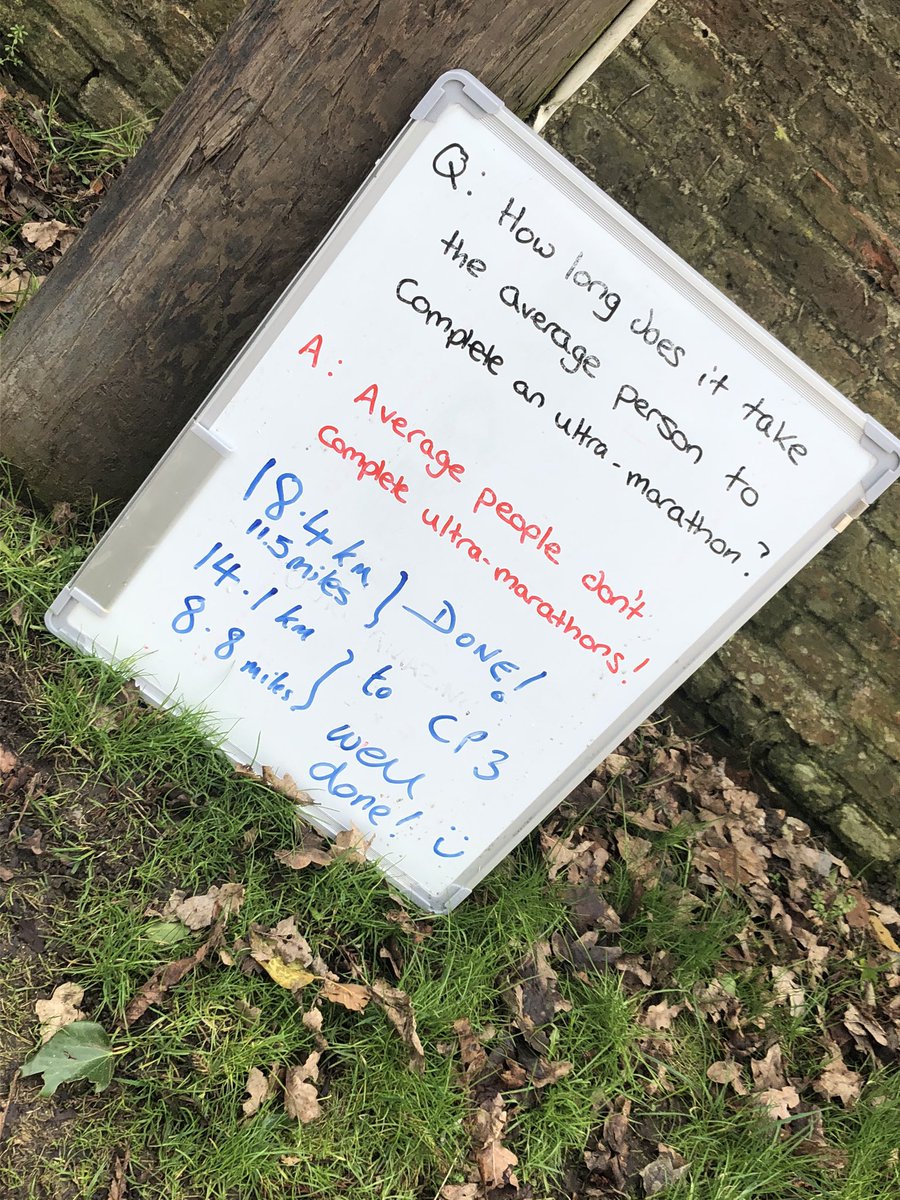 Q: How long does it take
the average person to
Complete an ultra-marathon?
A: Average people don't
complete ultra-marathons!
18.4 km
11.5 miles } DONE!
14.1 km
8.8 miles } to CP3
well
done! :)